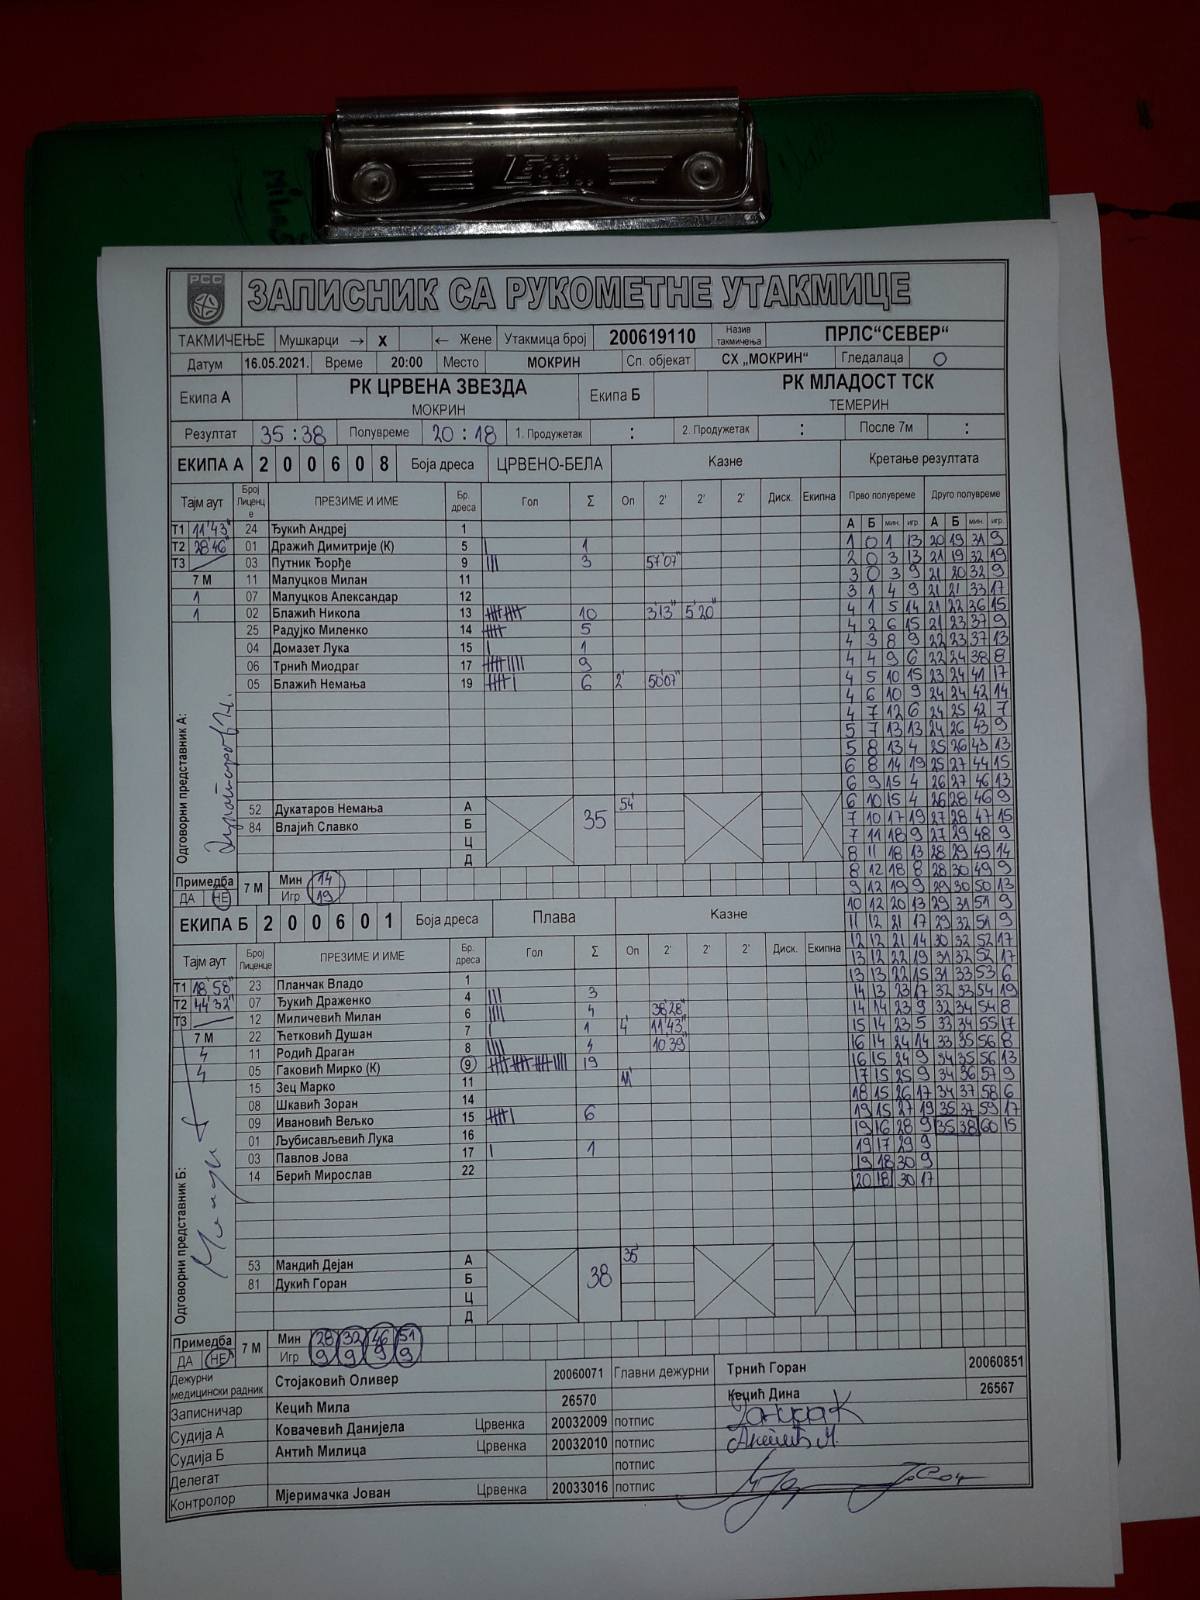 РСС
ЗАПИСНИК СА РУКОМЕТНЕ УТАКМИЦЕ
ТАКМИЧЕЊЕ Мушкарци → X ← Жене Утакмица број 200619110 Назив такмичења ПРЛС“СЕВЕР“
Датум 16.05.2021. Време 20:00 Место МОКРИН Сп. објекат СХ „МОКРИН“ Гледалаца 0
Екипа А РК ЦРВЕНА ЗВЕЗДА Екипа Б РК МЛАДОСТ ТСК
МОКРИН ТЕМЕРИН
Резултат 35 : 38 Полувреме 20 : 18 1. Продужетак : 2. Продужетак : После 7м :
ЕКИПА А 2 0 0 6 0 8 Боја дреса ЦРВЕНО-БЕЛА Казне Кретање резултата
Тајм аут Број Лиценце ПРЕЗИМЕ И ИМЕ Бр. дреса Гол Σ Оп 2' 2' 2' Диск. Екипна Прво полувреме Друго полувреме
А Б мин. игр А Б мин. игр.
Т1 11'43" 24 Ђукић Андреј 1
Т2 28'46" 01 Дражић Димитрије (К) 5 1
Т3 03 Путник Ђорђе 9 3 57'07"
7 М 11 Малуцков Милан 11
1 07 Малуцков Александар 12
1 02 Блажић Никола 13 10 3'13" 5'20"
25 Радујко Миленко 14 5
04 Домазет Лука 15 1
06 Трнић Миодраг 17 9
05 Блажић Немања 19 6 2' 50'07"
Одговорни представник А:
52 Дукатаров Немања А 35 54'
84 Влајић Славко Б
Ц
Д
Примедба ДА НЕ 7 М Мин 14
Игр 19
ЕКИПА Б 2 0 0 6 0 1 Боја дреса Плава Казне
Тајм аут Број Лиценце ПРЕЗИМЕ И ИМЕ Бр. дреса Гол Σ Оп 2' 2' 2' Диск. Екипна
Т1 18'58" 23 Планчак Владо 1
Т2 44'32" 07 Ђукић Драженко 4 3
Т3 12 Миличевић Милан 6 4 38'28"
7 М 22 Ћетковић Душан 7 1 4' 11'43"
4 11 Родић Драган 8 4 10'39"
4 05 Гаковић Мирко (К) 9 19
15 Зец Марко 11
08 Шкавић Зоран 14
09 Ивановић Вељко 15 6
01 Љубисављевић Лука 16
03 Павлов Јова 17 1
14 Берић Мирослав 22
Одговорни представник Б:
53 Мандић Дејан А 38 35'
81 Дукић Горан Б
Ц
Д
Примедба ДА НЕ 7 М Мин 28 32 46 51
Игр 9 9 9 9
1 0 1 13 20 19 31 9
2 0 3 13 21 19 32 19
3 0 3 9 21 20 32 9
3 1 4 9 21 21 33 17
4 1 5 14 21 22 36 15
4 2 6 15 21 23 37 9
4 3 8 9 22 23 37 13
4 4 9 6 22 24 38 8
4 5 10 15 23 24 41 17
4 6 10 9 24 24 42 14
4 7 12 6 24 25 42 7
5 7 13 13 24 26 43 9
5 8 13 4 25 26 43 13
6 8 14 19 25 27 44 15
6 9 15 4 26 27 46 13
6 10 15 4 26 28 46 9
7 10 17 19 27 28 47 15
7 11 18 9 27 29 48 9
8 11 18 13 28 29 49 14
8 12 18 8 28 30 49 9
9 12 19 9 29 30 50 13
10 12 20 13 29 31 51 9
11 12 21 17 29 32 51 9
12 12 21 14 30 32 52 17
13 12 22 19 31 32 52 17
13 13 22 15 31 33 53 6
14 13 23 17 32 33 54 19
14 14 23 9 32 34 54 8
15 14 23 5 33 34 55 17
16 14 24 14 33 35 56 8
16 15 24 9 34 35 56 13
17 15 25 9 34 36 57 9
18 15 26 17 34 37 58 6
19 15 27 19 35 37 59 17
19 16 28 9 35 38 60 15
19 17 29 9
19 18 30 9
20 18 30 17
Дежурни медицински радник Стојаковић Оливер 20060071 Главни дежурни Трнић Горан 20060851
Записничар Кецић Мила 26570 Кецић Дина 26567
Судија А Ковачевић Данијела Црвенка 20032009 потпис
Судија Б Антић Милица Црвенка 20032010 потпис
Делегат потпис
Контролор Мјеримачка Јован Црвенка 20033016 потпис